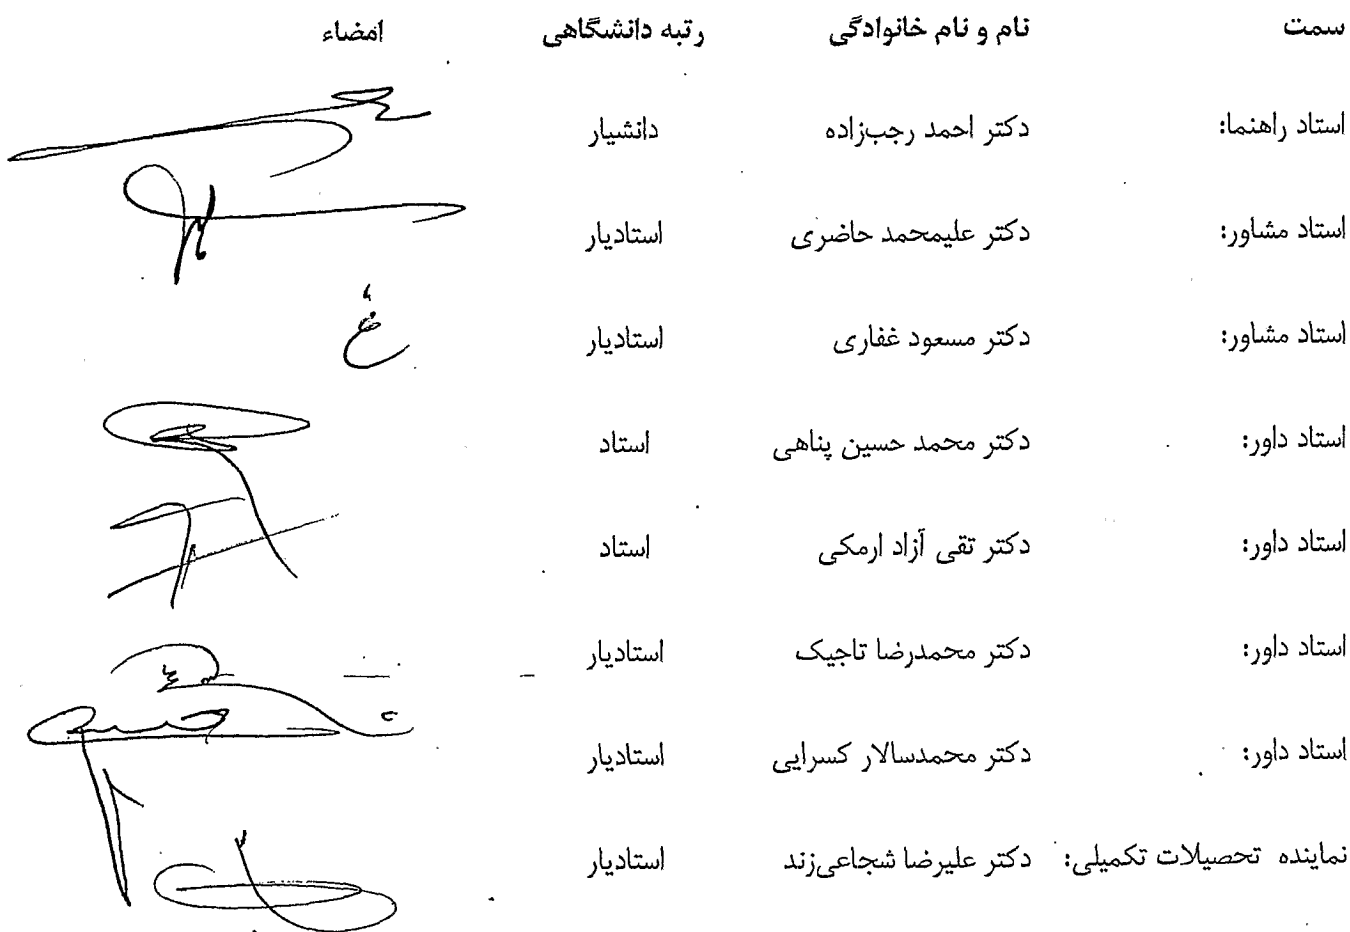 سمت نام و نام خانوادگی رتبه دانشگاهی امضاء
استاد راهنما: دکتر احمد رجب‌زاده دانشیار
استاد مشاور: دکتر علیمحمد حاضری استادیار
استاد مشاور: دکتر مسعود غفاری استادیار
استاد داور: دکتر محمد حسین پناهی استاد
استاد داور: دکتر تقی آزاد ارمکی استاد
استاد داور: دکتر محمدرضا تاجیک استادیار
استاد داور: دکتر محمدسالار کسرایی استادیار
نماینده تحصیلات تکمیلی: دکتر علیرضا شجاعی‌زند استادیار